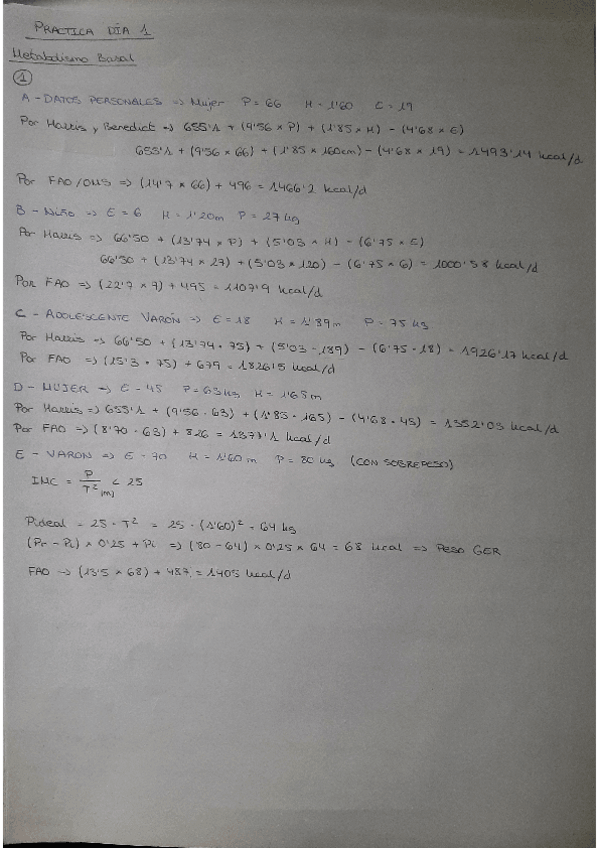 PRACTICA DÍA 1
Metabolismo Basal
①
A - DATOS PERSONALES => Mujer P = 66 H = 1'60 E = 19
Por Harris y Benedict => 655'1 + (9'56 x P) + (1'85 x H) - (4'68 x E)
655'1 + (9'56 x 66) + (1'85 x 160cm) - (4'68 x 19) = 1493'14 kcal/d
Por FAO/OMS => (14'7 x 66) + 496 = 1466'2 kcal/d
B - Niño => E = 6 H = 1'20m P = 27 kg
Por Harris => 66'50 + (13'74 x P) + (5'03 x H) - (6'75 x E)
66'50 + (13'74 x 27) + (5'03 x 120) - (6'75 x 6) = 1000'58 kcal/d
POR FAO => (22'7 x 7) + 495 = 1107'9 kcal/d
C - ADOLESCENTE VARÓN => E = 18 H = 1'89m P = 75 kg
Por Harris => 66'50 + (13'74 · 75) + (5'03 · 189) - (6'75 · 18) = 1926'17 kcal/d
Por FAO => (15'3 · 75) + 679 = 1826'5 kcal/d
D - MUJER => E - 45 P = 63 kg H = 1'65m
Por Harris => 655'1 + (9'56 · 63) + (1'85 · 165) - (4'68 · 45) = 1352'03 kcal/d
Por FAO => (8'70 · 63) + 826 = 1377'1 kcal/d
E - VARON => E - 70 H = 1'60 m P = 80 kg (CON SOBREPESO)
IMC = P / T² (m) < 25
Pideal = 25 · T² = 25 · (1'60)² = 64 kg
(Pr - Pi) x 0'25 + Pi => (80 - 64) x 0'25 x 64 = 68 kcal => Peso GER
FAO -> (13'5 x 68) + 487 = 1405 kcal/d